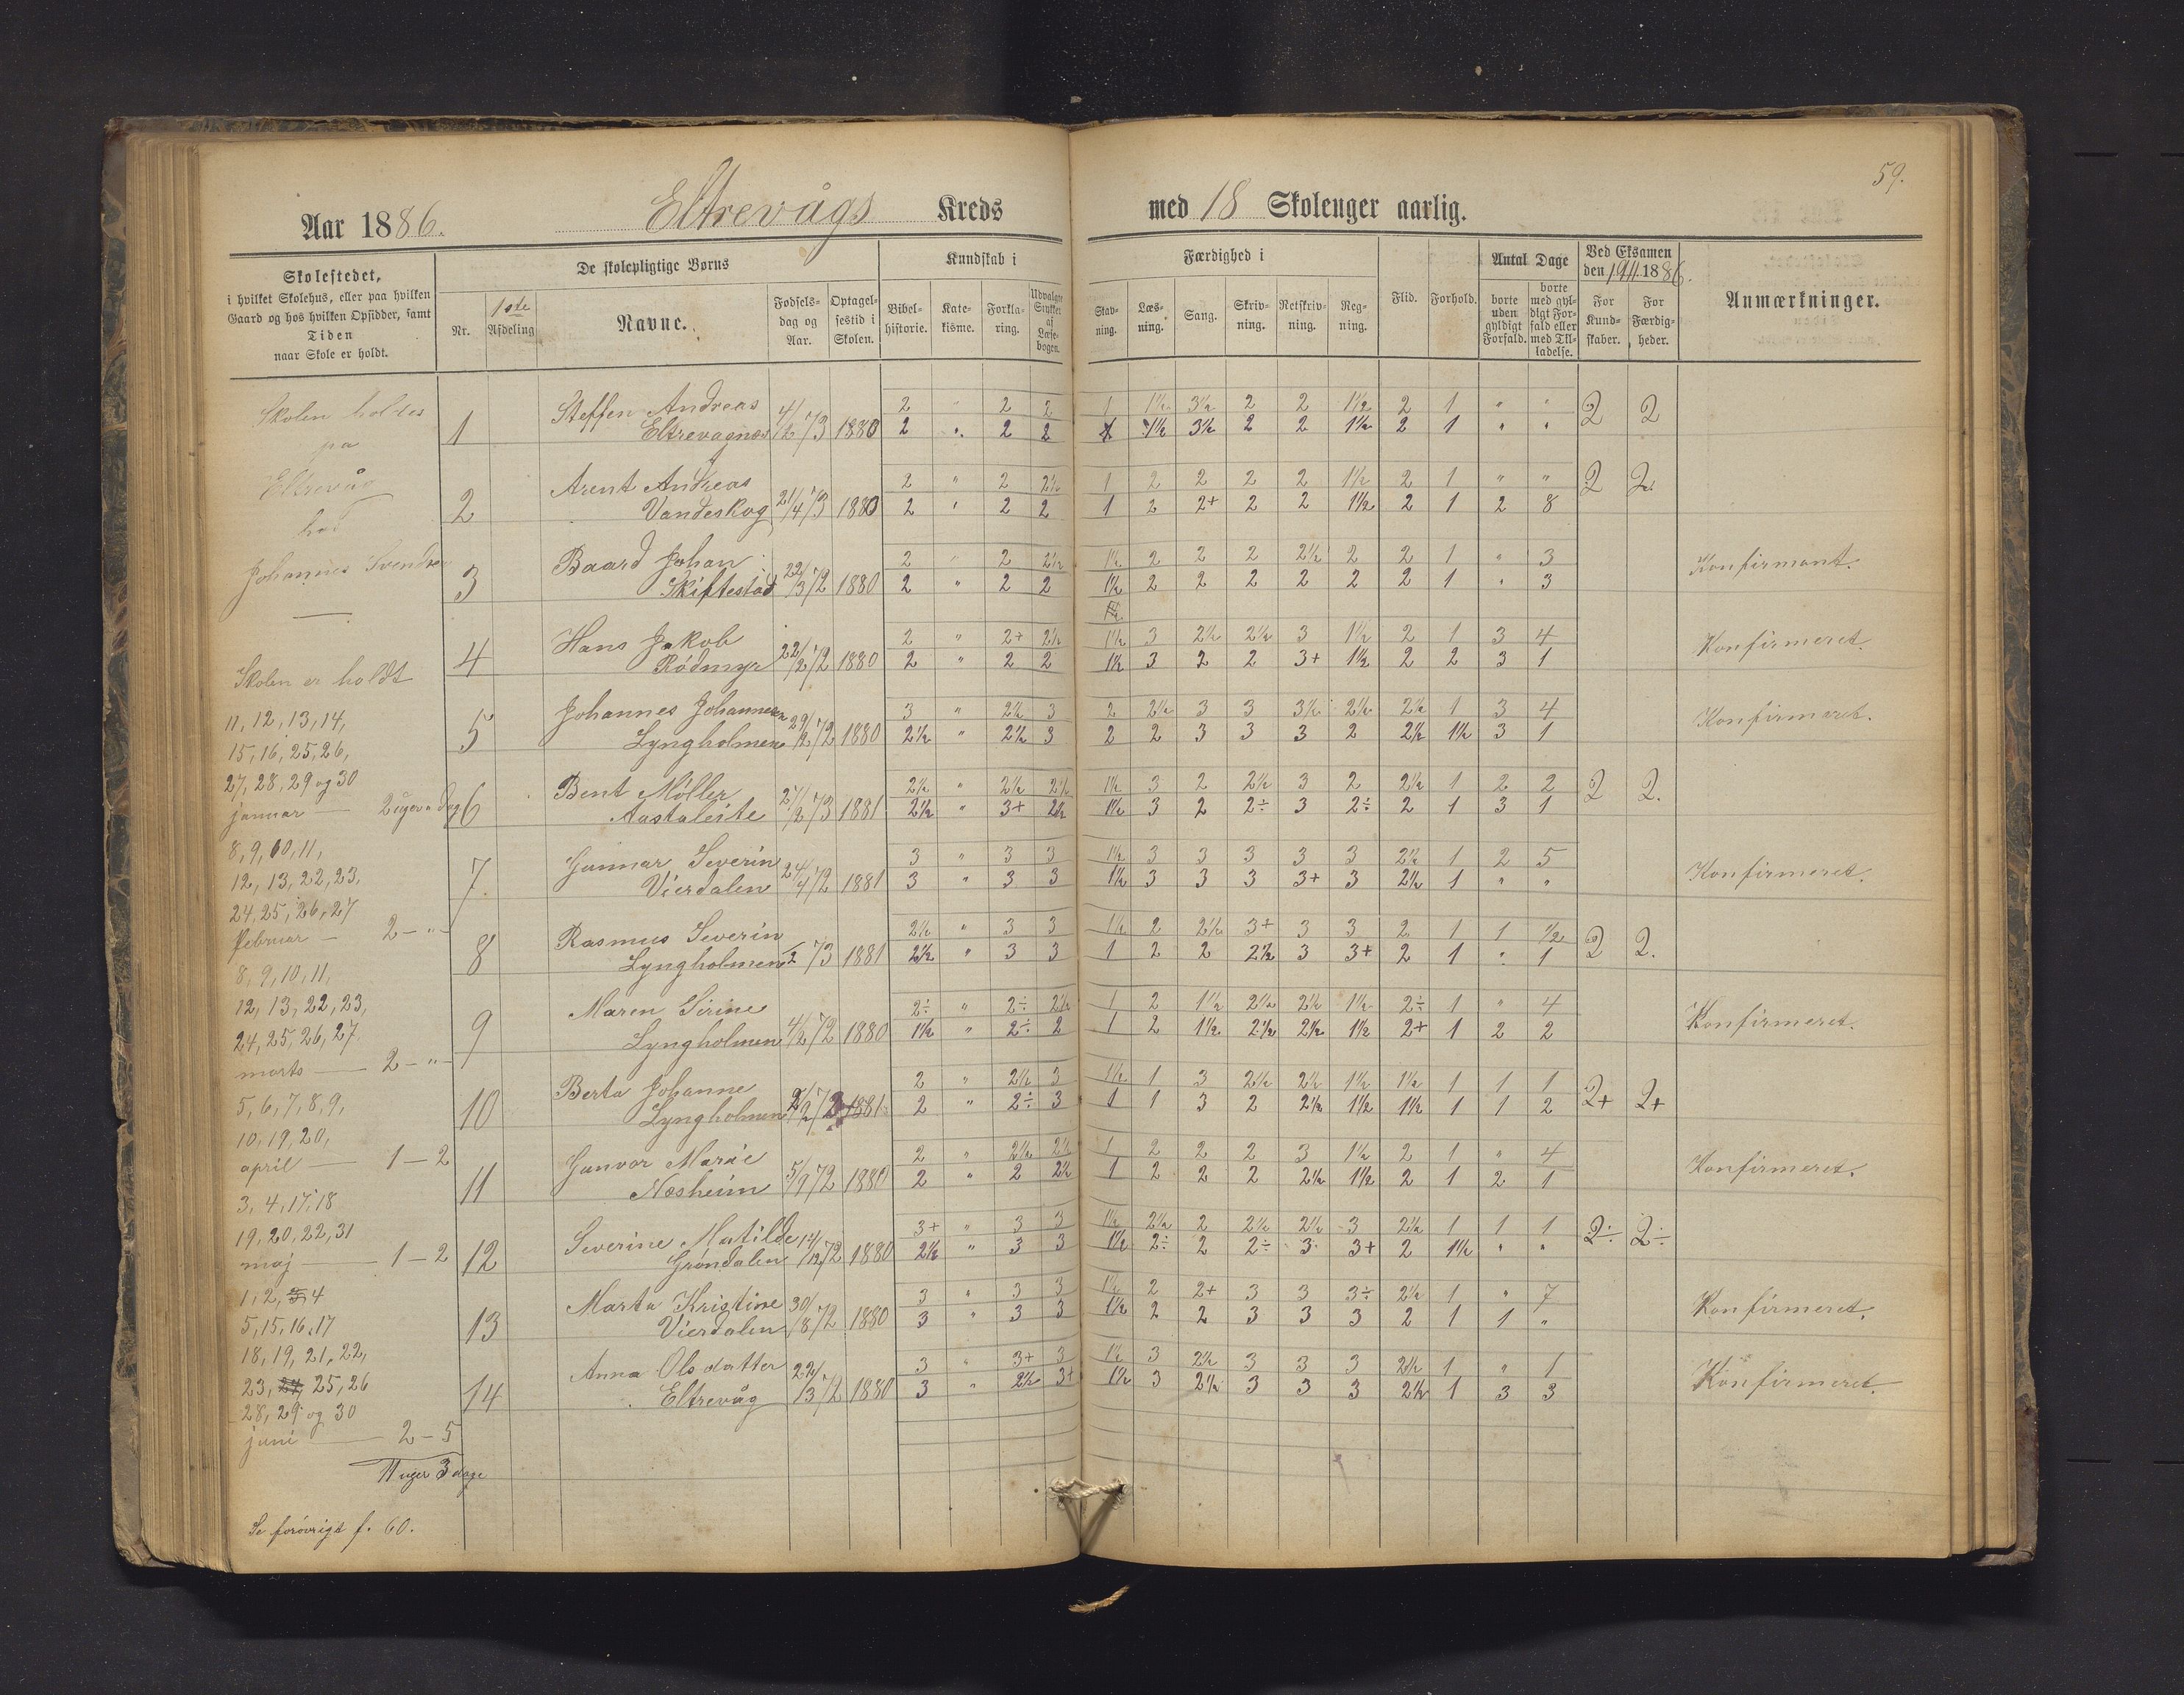 59.
Aar 1886. Eltrevågs Kreds med 18 Skoleuger aarlig.
Skolestedet,
i hvilket Skolehus, eller paa hvilken
Gaard og hos hvilken Opsidder, samt
Tiden
naar Skole er holdt.
De skolepligtige Børns
Nr.
1ste
Afdeling
Navne.
Fødsels-
dag og
Aar.
Optagel-
sestid i
Skolen.
Kundskab i
Bibel-
historie.
Kate-
kisme.
Forkla-
ring.
Udvalgte
Stykker
af
Læse-
bogen.
Færdighed i
Stav-
ning.
Læs-
ning.
Sang.
Skriv-
ning.
Retskriv-
ning.
Reg-
ning.
Flid.
Forhold.
Antal Dage
borte
uden
gyldigt
Forfald.
borte
med gyl-
digt For-
fald eller
med Til-
ladelse.
Ved Eksamen
den 19/11 1886.
For
Kund-
skaber.
For
Færdig-
heder.
Anmærkninger.
Skolen holdes
pa
Eltrevåg
hos
Johannes Svendsen
Skolen er holdt
11, 12, 13, 14,
15, 16, 25, 26,
27, 28, 29 og 30
januar — 2 uger " dag
8, 9, 10, 11,
12, 13, 22, 23,
24, 25, 26, 27
februar — 2 - " -
8, 9, 10, 11,
12, 13, 22, 23,
24, 25, 26, 27
marts — 2 - " -
5, 6, 7, 8, 9,
10, 19, 20,
april — 1 - 2
3, 4, 17, 18
19, 20, 22, 31
maj — 1 - 2
1, 2, 3, 4
5, 15, 16, 17
18, 19, 21, 22,
23, 24, 25, 26
28, 29 og 30
juni — 2 - 5
11 uger 3 dage
Se forøvrigt f. 60.
1 Steffen Andreas 2 " 2 2 1 1½ 3½ 2 2 1½ 2 1 " " 2 2
Eltrevagnæs 4/12 73 1880 2 " 2 2 1 1½ 3½ 2 2 1½ 2 1 " "
2 Arent Andreas 2 " 2 2½ 1 2 2 2 2 1½ 2 1 " " 2 2
Vandeskog 21/4 73 1880 2 " 2 2 1 2 2+ 2 2 1½ 2 1 2 8
3 Baard Johan 2 " 2 2½ 1½ 2 2 2 2½ 2 2 1 " 3 Konfirmant.
Skiftestad 22/3 72 1880 2 " 2 2 1½ 2 2 2 2 2 2 1 " 3
4 Hans Jakob 2 " 2+ 2½ 1½ 3 2½ 2½ 3 1½ 2 1 3 4 Konfirmeret.
Rødmyr 22/2 72 1880 2 " 2 2 1½ 3 2 2 3+ 1½ 2 2 3 1
5 Johannes Johannesen 3 " 2½ 3 2 2½ 3 3 3½ 2½ 2½ 1 3 4 Konfirmeret.
Lyngholmen 29/2 72 1880 2½ " 2½ 3 2 2 3 3 3 2 2½ 1½ 3 1
6 Bent Møller 2½ " 2½ 2½ 1½ 3 2 2½ 3 2 2½ 1 2 2 2 2.
Aastaleite 73 1881 2½ " 3+ 2½ 1½ 3 2 2÷ 3 2÷ 2 1 3 1
7 Gunnar Severin 3 " 3 3 1½ 3 3 3 3 3 2½ 1 2 5 Konfirmeret.
Vierdalen 24/4 72 1881 3 " 3 3 1½ 3 3 3 3+ 3 2½ 1 " "
8 Rasmus Severin 2½ " 3 3 1½ 2 2½ 3+ 3 3 2 1 1 ½ 2 2.
Lyngholmen 73 1881 2½ " 3 3 1 2 2 2½ 3 3+ 2 1 " 1
9 Maren Sirine 2÷ " 2÷ 2½ 1 2 1½ 2½ 2½ 1½ 2÷ 1 " 4 Konfirmeret.
Lyngholmen 4/2 72 1880 1½ " 2÷ 2 1 2 1½ 2½ 2½ 1½ 2+ 1 2 2
10 Berta Johanne 2 " 2½ 3 1½ 1 3 2½ 2½ 1½ 1½ 1 1 1 2+ 2+
Lyngholmen 1881 2 " 2÷ 3 1 1 3 2 2½ 1½ 1½ 1 1 2
11 Gunvor Marie 2 " 2½ 2½ 1 2 2 2 3 1½ 2 1 " 4 Konfirmeret.
Næsheim 5/9 72 1880 2 " 2 2½ 1 2 2 2 2½ 1½ 2 1 2 1
12 Severine Matilde 3+ " 3 3 1½ 2½ 2 2½ 2½ 3 2½ 1 1 1 2÷ 2÷
Grøndalen 14/12 72 1880 2½ " 3 3 1½ 2÷ 2 2÷ 3 3+ 2 1½ " "
13 Marta Kristine 3 " 3 3 1½ 2 2+ 3 3 3÷ 2½ 1 " 7 Konfirmeret.
Vierdalen 30/8 72 1880 3 " 3 3 1½ 2 2 3 3 3 2 1 1 "
14 Anna Olsdatter 3 " 3+ 3 1½ 3 2½ 3 3 3 2½ 1 " 1 Konfirmeret.
Eltrevåg 22/3 72 1880 3 " 2½ 3+ 1½ 3 2½ 3 3 3 2½ 1 3 3